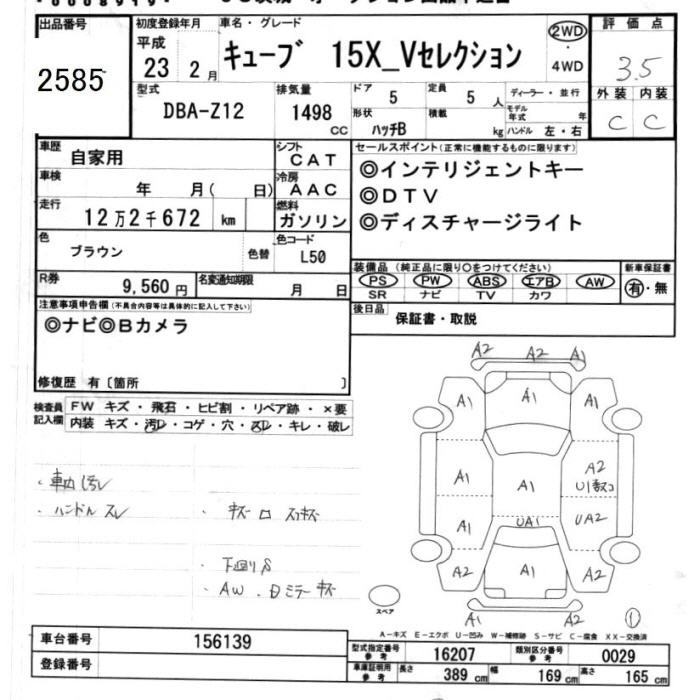 出品番号 2585
初度登録年月 平成 23 2月
車名・グレード キューブ 15X_Vセレクション
2WD・4WD
評価点 3.5
外装 内装
C C
型式 DBA-Z12
排気量 1498 CC
ドア 5
定員 5 人
形状 ハッチB
積載 kg
ディーラー・並行
モデル年式 年
ハンドル 左・右
車歴 自家用
シフト CAT
車検 年 月( 日)
冷房 AAC
走行 12万2千672 km
燃料 ガソリン
色 ブラウン 色替
色コード L50
R券 9,560円
名変通知期限 月 日
セールスポイント(正常に機能するものに限ります)
◎インテリジェントキー
◎DTV
◎ディスチャージライト
装備品(純正品に限り○をつけてください)
PS PW ABS エアB AW
SR ナビ TV カワ
新車保証書
有・無
後日品 保証書・取説
注意事項申告欄(不具合内容等は具体的に記入して下さい)
◎ナビ◎Bカメラ
修復歴 有〔箇所 〕
検査員記入欄
FW キズ・飛石・ヒビ割・リペア跡・×要
内装 キズ・汚レ・コゲ・穴・スレ・キレ・破レ
・車内汚レ
・ハンドルスレ
・下廻りS
・AW.
A2 A2 A1
A1 A1 A1
A1 A1 A2
A1 UA1 UA2
A2 A1 A2
A1 A2
スペア
①
A-キズ E-エクボ U-凹み W-補修跡 S-サビ C-腐食 XX-交換済
車台番号 156139
登録番号
型式指定番号 参考 16207
類別区分番号 参考 0029
車庫証明用 参考 長さ 389 cm 幅 169 cm 高さ 165 cm